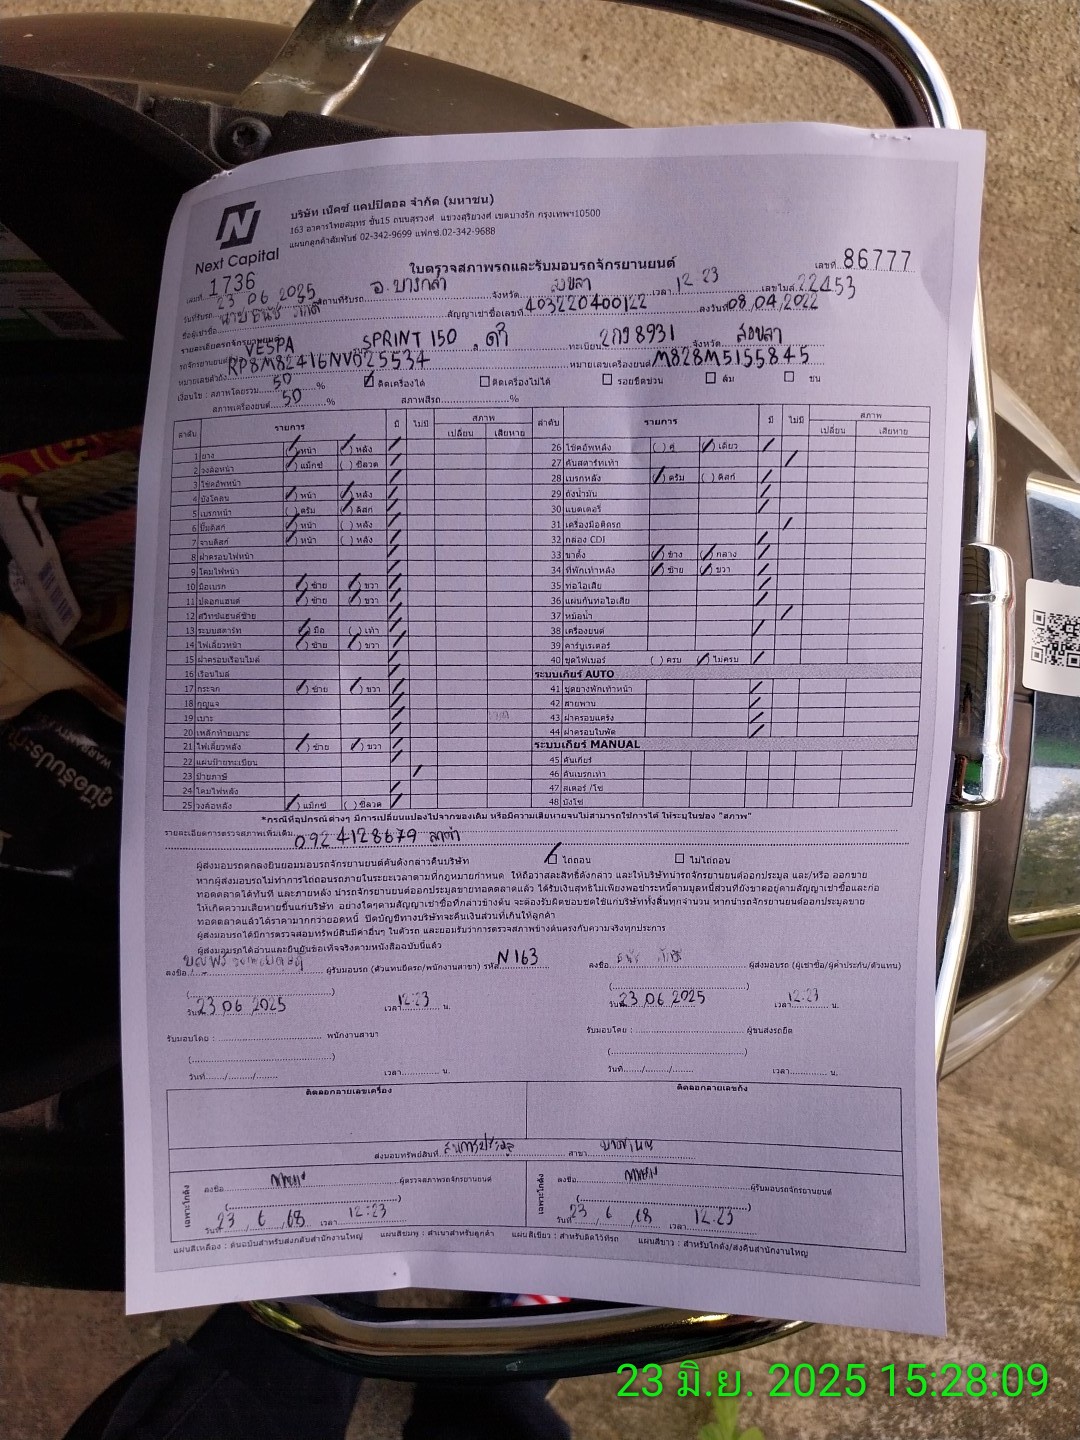 Next Capital
บริษัท เน็คซ์ แคปปิตอล จำกัด (มหาชน)
163 อาคารไทยสมุทร ชั้น15 ถนนสุรวงศ์ แขวงสุริยวงศ์ เขตบางรัก กรุงเทพฯ10500
แผนกลูกค้าสัมพันธ์ 02-342-9699 แฟกซ์.02-342-9688
ใบตรวจสภาพรถและรับมอบรถจักรยานยนต์
เลขที่ 86777
1736
วันที่รับรถ 23 06 2025 สถานที่รับรถ อ.บางกล่ำ จังหวัด สงขลา เวลา 12.23 เลขไมล์ 22453
ชื่อผู้เช่าซื้อ นาย ธนัช ภักดี สัญญาเช่าซื้อเลขที่ 403220400122 ลงวันที่ 08.04.2022
รายละเอียดรถจักรยานยนต์
รถจักรยานยนต์ VESPA SPRINT 150 สี ดำ ทะเบียน 2กง 8931 จังหวัด สงขลา
หมายเลขตัวถัง RP8M82416NV025534 หมายเลขเครื่องยนต์ M828M5155845
เงื่อนไข : สภาพโดยรวม 50 % ติดเครื่องได้ ติดเครื่องไม่ได้ รอยขีดข่วน ล้ม ชน
สภาพเครื่องยนต์ 50 % สภาพสีรถ %
ลำดับ รายการ มี ไม่มี สภาพ เปลี่ยน เสียหาย ลำดับ รายการ มี ไม่มี สภาพ เปลี่ยน เสียหาย
1 ยาง หน้า หลัง 26 โช้คอัพหลัง ( ) คู่ เดี่ยว
2 วงล้อหน้า แม็กซ์ ( ) ซี่ลวด 27 คันสตาร์ทเท้า
3 โช้คอัพหน้า 28 เบรกหลัง ดรัม ( ) ดิสก์
4 บังโคลน หน้า หลัง 29 ถังน้ำมัน
5 เบรกหน้า ( ) ดรัม ดิสก์ 30 แบตเตอรี่
6 ปั๊มดิสก์ หน้า ( ) หลัง 31 เครื่องมือติดรถ
7 จานดิสก์ หน้า ( ) หลัง 32 กล่อง CDI
8 ฝาครอบไฟหน้า 33 ขาตั้ง ข้าง กลาง
9 โคมไฟหน้า 34 ที่พักเท้าหลัง ซ้าย ขวา
10 มือเบรก ซ้าย ขวา 35 ท่อไอเสีย
11 ปลอกแฮนด์ ซ้าย ขวา 36 แผ่นกันท่อไอเสีย
12 สวิทช์แฮนด์ซ้าย 37 หม้อน้ำ
13 ระบบสตาร์ท มือ ( ) เท้า 38 เครื่องยนต์
14 ไฟเลี้ยวหน้า ซ้าย ขวา 39 คาร์บูเรเตอร์
15 ฝาครอบเรือนไมล์ 40 ชุดไฟเบอร์ ( ) ครบ ไม่ครบ
16 เรือนไมล์ ระบบเกียร์ AUTO
17 กระจก ซ้าย ขวา 41 ชุดยางพักเท้าหน้า
18 กุญแจ 42 สายพาน
19 เบาะ 43 ฝาครอบแคร้ง
20 เหล็กท้ายเบาะ 44 ฝาครอบใบพัด
21 ไฟเลี้ยวหลัง ซ้าย ขวา ระบบเกียร์ MANUAL
22 แผ่นป้ายทะเบียน 45 คันเกียร์
23 ป้ายภาษี 46 คันเบรกเท้า
24 โคมไฟหลัง 47 สเตอร์ /โซ่
25 วงล้อหลัง แม็กซ์ ( ) ซี่ลวด 48 บังโซ่
*กรณีที่อุปกรณ์ต่างๆ มีการเปลี่ยนแปลงไปจากของเดิม หรือมีความเสียหายจนไม่สามารถใช้การได้ ให้ระบุในช่อง "สภาพ"
รายละเอียดการตรวจสภาพเพิ่มเติม 0924128679 ลูกค้า
ผู้ส่งมอบรถตกลงยินยอมมอบรถจักรยานยนต์คันดังกล่าวคืนบริษัท ไถ่ถอน ไม่ไถ่ถอน
หากผู้ส่งมอบรถไม่ทำการไถ่ถอนรถภายในระยะเวลาตามที่กฎหมายกำหนด ให้ถือว่าสละสิทธิ์ดังกล่าว และให้บริษัทนำรถจักรยานยนต์ออกประมูล และ/หรือ ออกขาย
ทอดตลาดได้ทันที และภายหลัง นำรถจักรยานยนต์ออกประมูลขายทอดตลาดแล้ว ได้รับเงินสุทธิไม่เพียงพอชำระหนี้ตามมูลหนี้ส่วนที่ยังขาดอยู่ตามสัญญาเช่าซื้อและก่อ
ให้เกิดความเสียหายขึ้นแก่บริษัท อย่างใดๆตามสัญญาเช่าซื้อที่กล่าวข้างต้น จะต้องรับผิดชอบชดใช้แก่บริษัททั้งสิ้นทุกจำนวน หากนำรถจักรยานยนต์ออกประมูลขาย
ทอดตลาดแล้วได้ราคามากกว่ายอดหนี้ ปิดบัญชีทางบริษัทจะคืนเงินส่วนที่เกินให้ลูกค้า
ผู้ส่งมอบรถได้มีการตรวจสอบทรัพย์สินมีค่าอื่นๆ ในตัวรถ และยอมรับว่าการตรวจสภาพข้างต้นตรงกับความจริงทุกประการ
ผู้ส่งมอบรถได้อ่านและยืนยันข้อเท็จจริงตามหนังสือฉบับนี้แล้ว
ลงชื่อ ผู้รับมอบรถ (ตัวแทนยึดรถ/พนักงานสาขา) รหัส N163 ลงชื่อ ธนัช ภักดี ผู้ส่งมอบรถ (ผู้เช่าซื้อ/ผู้ค้ำประกัน/ตัวแทน)
วันที่ 23 06 2025 เวลา 12:23 น. วันที่ 23 06 2025 เวลา 12:23 น.
รับมอบโดย : พนักงานสาขา รับมอบโดย : ผู้ขนส่งรถยึด
วันที่ / / เวลา น. วันที่ / / เวลา น.
ติดลอกลายเลขเครื่อง ติดลอกลายเลขถัง
ส่งมอบทรัพย์สินที่ ลานการประมูล สาขา
เฉพาะโกดัง ลงชื่อ ผู้ตรวจสภาพรถจักรยานยนต์ เฉพาะโกดัง ลงชื่อ ผู้รับมอบรถจักรยานยนต์
วันที่ 23 / 6 / 68 เวลา 12:23 วันที่ 23 / 6 / 68 เวลา 12.23
แผ่นสีเหลือง : ต้นฉบับสำหรับส่งกลับสำนักงานใหญ่ แผ่นสีชมพู : สำเนาสำหรับลูกค้า แผ่นสีเขียว : สำหรับติดไว้ที่รถ แผ่นสีขาว : สำหรับโกดัง/ส่งคืนสำนักงานใหญ่
คู่มือรับประกัน
WARRANTY
23 มิ.ย. 2025 15:28:09